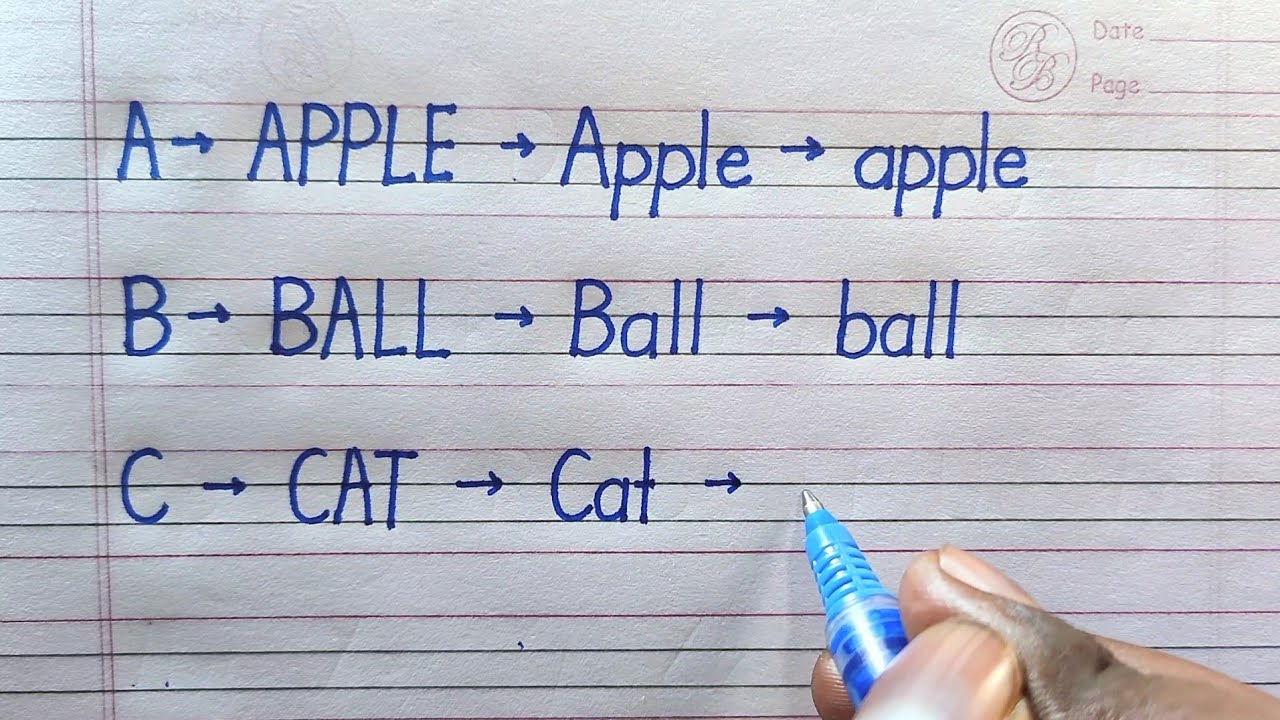 Date
Page
A → APPLE → Apple → apple
B → BALL → Ball → ball
C → CAT → Cat →